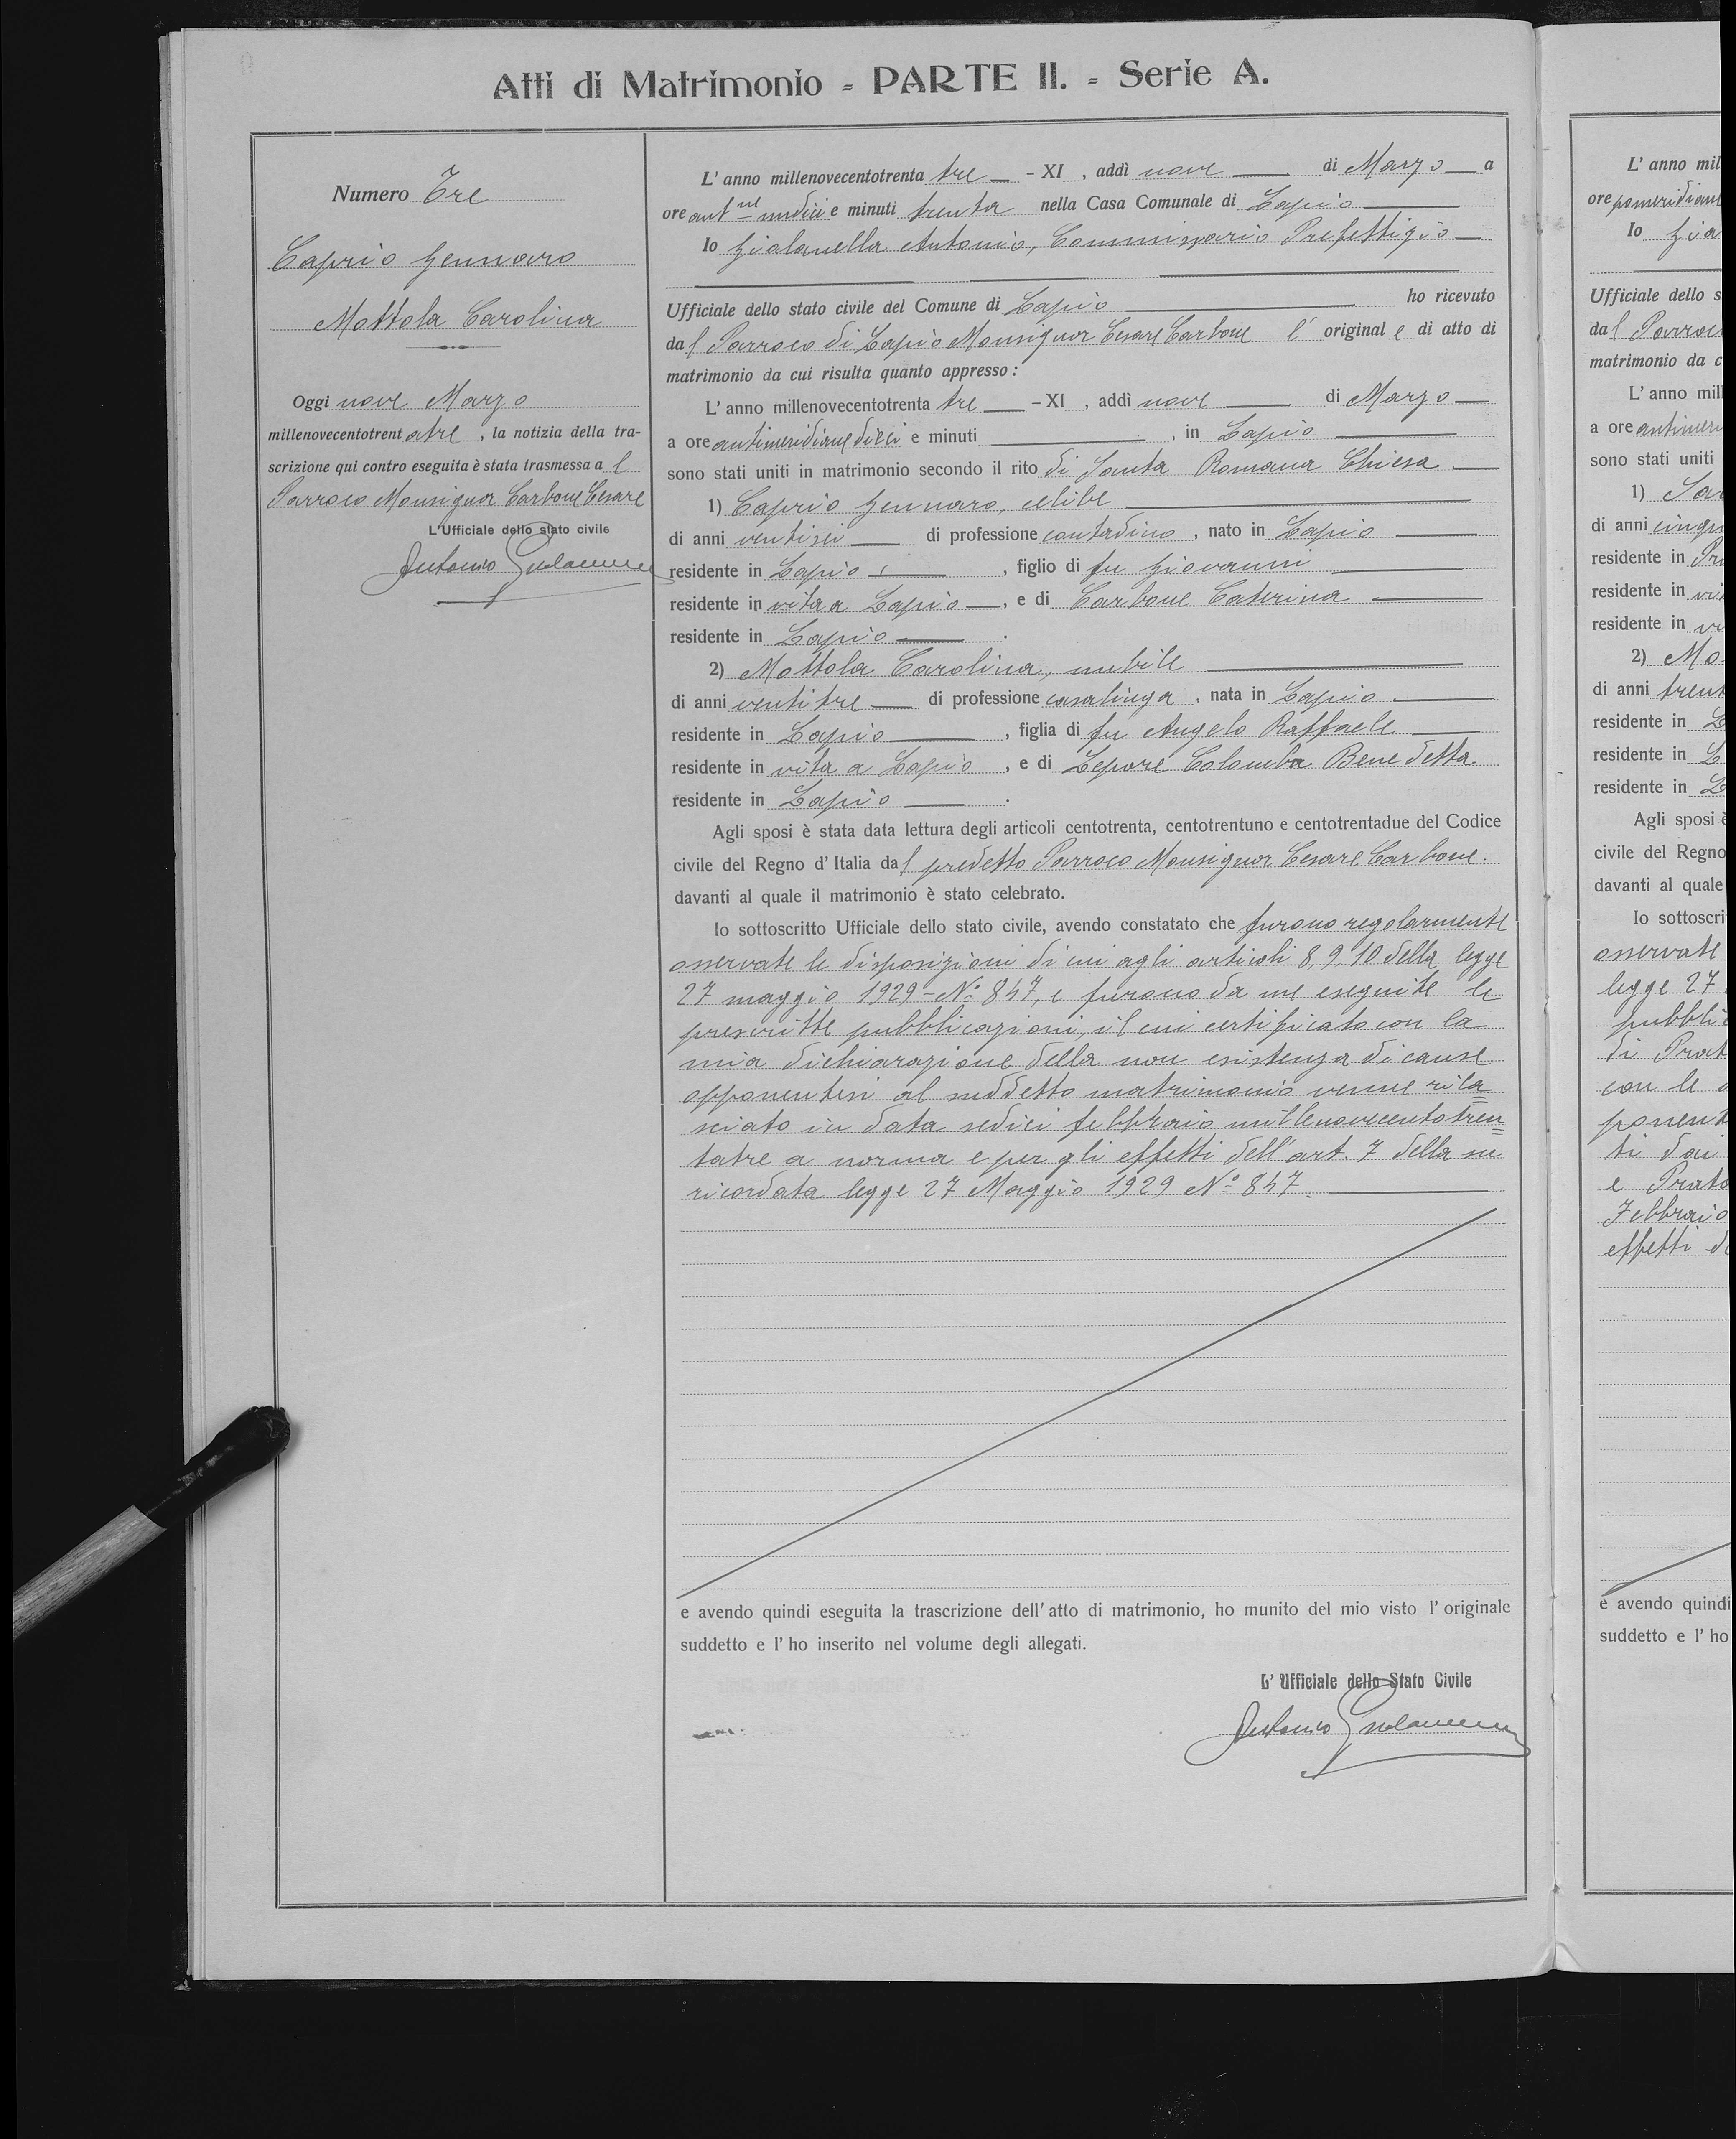 Atti di Matrimonio = PARTE II. = Serie A.
Numero Tre
Caprio Gennaro
Mottola Carolina
Oggi nove Marzo
millenovecentotrentatre, la notizia della tra-
scrizione qui contro eseguita è stata trasmessa al
Parroco Monsignor Carbone Cesare
L'Ufficiale dello stato civile
Antonio
L'anno millenovecentotrenta tre - XI, addì nove di Marzo a
ore antne undici e minuti trenta nella Casa Comunale di Lapio
Io Gialanella Antonio, Commissario Prefettizio
Ufficiale dello stato civile del Comune di Lapio ho ricevuto
dal Parroco di Lapio Monsignor Cesare Carbone l' originale di atto di
matrimonio da cui risulta quanto appresso:
L'anno millenovecentotrenta tre - XI, addì nove di Marzo
a ore antimeridiane dieci e minuti , in Lapio
sono stati uniti in matrimonio secondo il rito di Santa Romana Chiesa
1) Caprio Gennaro, celibe
di anni ventisei di professione contadino, nato in Lapio
residente in Lapio, figlio di fu Giovanni
residente in vita a Lapio, e di Carbone Caterina
residente in Lapio.
2) Mottola Carolina, nubile
di anni ventitre di professione casalinga, nata in Lapio
residente in Lapio, figlia di fu Angelo Raffaele
residente in vita a Lapio, e di Lepore Colomba Benedetta
residente in Lapio.
Agli sposi è stata data lettura degli articoli centotrenta, centotrentuno e centotrentadue del Codice
civile del Regno d'Italia dal predetto Parroco Monsignor Cesare Carbone.
davanti al quale il matrimonio è stato celebrato.
Io sottoscritto Ufficiale dello stato civile, avendo constatato che furono regolarmente
osservate le disposizioni di cui agli articoli 8, 9, 10 della legge
27 maggio 1929 - No 847, e furono da me eseguite le
prescritte pubblicazioni, il cui certificato con la
mia dichiarazione della non esistenza di cause
opponentesi al suddetto matrimonio venne rila=
sciato in data sedici febbraio millenovecentotren=
tatre a norma e per gli effetti dell'art. 7 della su
ricordata legge 27 Maggio 1929 No 847.
e avendo quindi eseguita la trascrizione dell'atto di matrimonio, ho munito del mio visto l'originale
suddetto e l'ho inserito nel volume degli allegati.
L'Ufficiale dello Stato Civile
Antonio
L'anno mil
ore pomeridiane
Io Gia
Ufficiale dello s
dal Parroc
matrimonio da c
L'anno mill
a ore antimeri
sono stati uniti
1)
di anni cinqu
residente in Pr
residente in vi
residente in
2) Mo
di anni trent
residente in L
residente in L
residente in L
Agli sposi è
civile del Regno
davanti al quale
Io sottoscri
osservate
legge 27
pubbli
di Prat
con le
ponent
ti dai
e Prato
Febbraio
effetti d
e avendo quindi
suddetto e l'ho